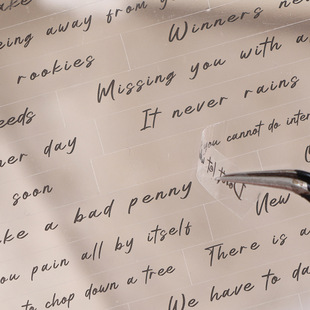 eing away from yo
Winners ne
rookies
Missing you with a
eeds
It never rains
ner day
you cannot do inter
soon
ke a bad penny
New
ou pain all by itself
There is a
to chop down a tree
We have to da